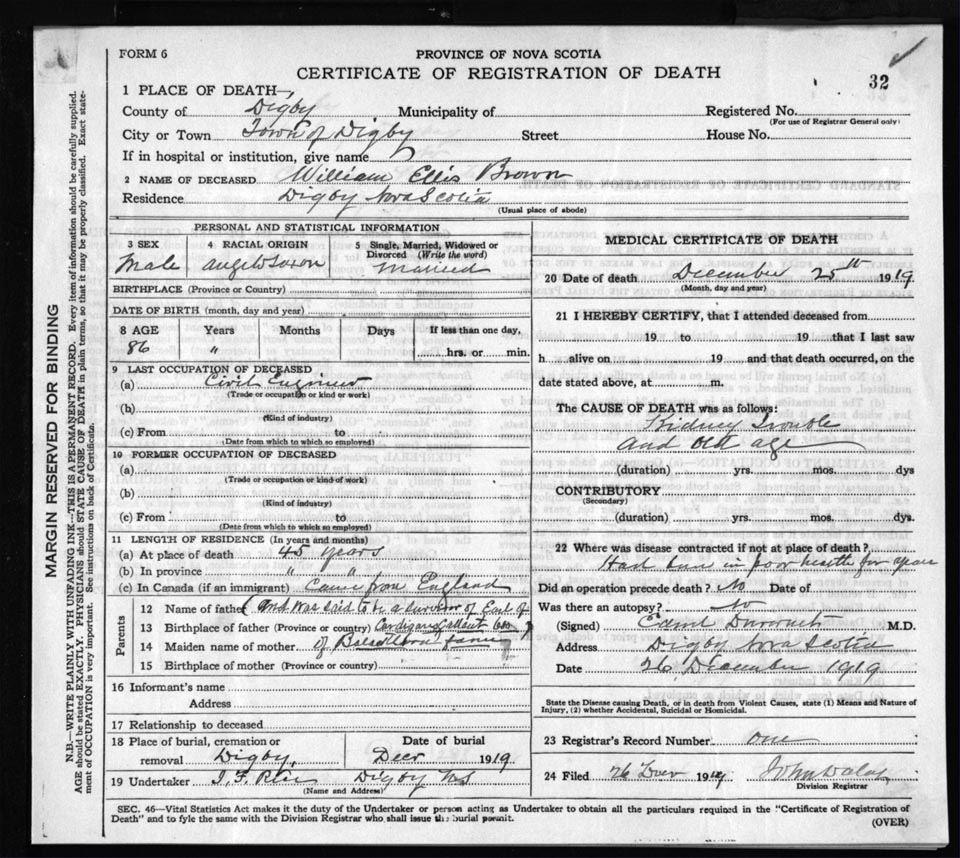 FORM 6
PROVINCE OF NOVA SCOTIA
CERTIFICATE OF REGISTRATION OF DEATH
32
1 PLACE OF DEATH
County of Digby Municipality of Registered No.
(For use of Registrar General only)
City or Town Town of Digby Street House No.
If in hospital or institution, give name
2 NAME OF DECEASED William Ellis Brown
Residence Digby Nova Scotia
(Usual place of abode)
PERSONAL AND STATISTICAL INFORMATION
3 SEX 4 RACIAL ORIGIN 5 Single, Married, Widowed or Divorced (Write the word)
Male Anglo Saxon Married
BIRTHPLACE (Province or Country)
DATE OF BIRTH (month, day and year)
8 AGE Years Months Days If less than one day,
86 " hrs. or min.
9 LAST OCCUPATION OF DECEASED
(a) Civil Engineer
(Trade or occupation or kind or work)
(b)
(Kind of industry)
(c) From to
(Date from which to which so employed)
10 FORMER OCCUPATION OF DECEASED
(a)
(Trade or occupation or kind of work)
(b)
(Kind of industry)
(c) From to
(Date from which to which so employed)
11 LENGTH OF RESIDENCE (In years and months)
(a) At place of death 45 years
(b) In province " "
(c) In Canada (if an immigrant) Came from England
Parents
12 Name of father (and was said to be a survivor of Earl of
13 Birthplace of father (Province or country) Cardigans Gallent 600
14 Maiden name of mother of Balaclava fame
15 Birthplace of mother (Province or country)
16 Informant's name
Address
17 Relationship to deceased
18 Place of burial, cremation or removal Digby, Date of burial Decr 1919
19 Undertaker Digby NS
(Name and Address)
MEDICAL CERTIFICATE OF DEATH
20 Date of death December 25th 1919
(Month, day and year)
21 I HEREBY CERTIFY, that I attended deceased from
19 to 19 that I last saw
h alive on 19 and that death occurred, on the
date stated above, at m.
The CAUSE OF DEATH was as follows:
Kidney Trouble
and old age
(duration) yrs. mos. dys
CONTRIBUTORY
(Secondary)
(duration) yrs. mos. dys.
22 Where was disease contracted if not at place of death?
Had been in poor health for years
Did an operation precede death? No Date of
Was there an autopsy? No
(Signed) M.D.
Address Digby Nova Scotia
Date 26 December 1919
State the Disease causing Death, or in death from Violent Causes, state (1) Means and Nature of
Injury, (2) whether Accidental, Suicidal or Homicidal.
23 Registrar's Record Number one
24 Filed 26 1919
Division Registrar
SEC. 46—Vital Statistics Act makes it the duty of the Undertaker or person acting as Undertaker to obtain all the particulars required in the "Certificate of Registration of
Death" and to fyle the same with the Division Registrar who shall issue the burial permit.
(OVER)
MARGIN RESERVED FOR BINDING
N.B.—WRITE PLAINLY WITH UNFADING INK—THIS IS A PERMANENT RECORD. Every item of information should be carefully supplied.
AGE should be stated EXACTLY. PHYSICIANS should STATE CAUSE OF DEATH in plain terms, so that it may be properly classified. Exact state-
ment of OCCUPATION is very important. See instructions on back of Certificate.